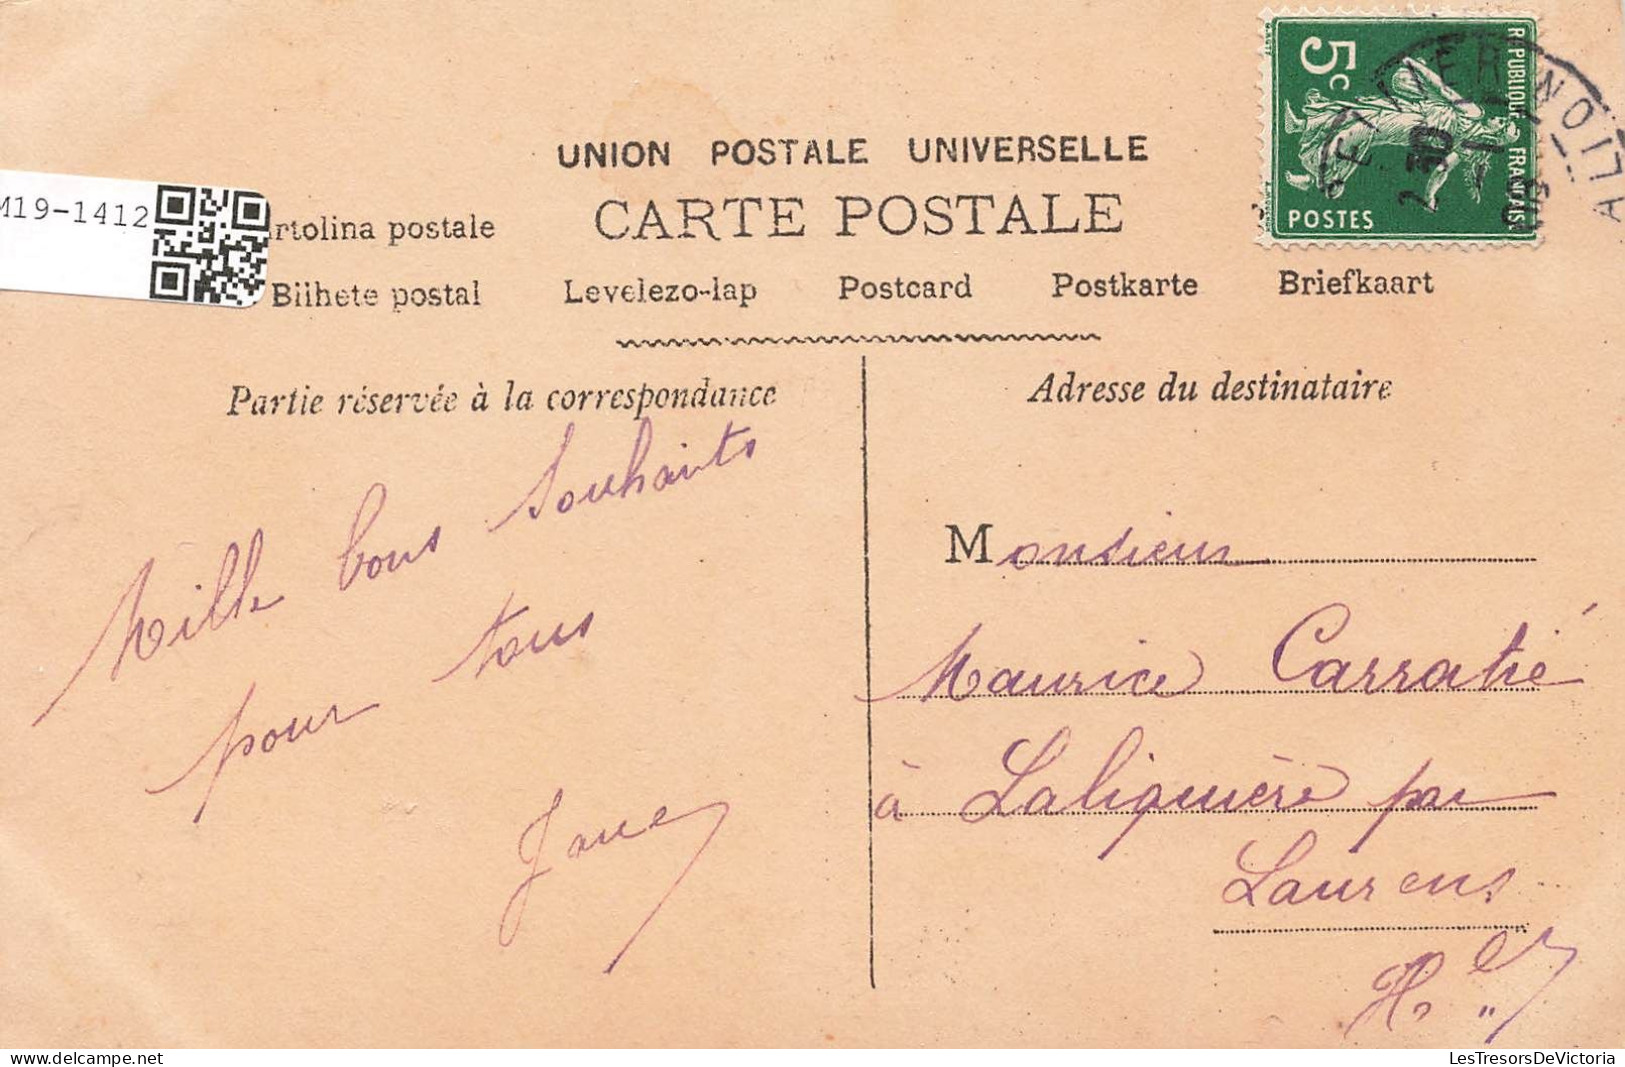 5c
REPUBLIQUE FRANÇAISE
POSTES
UNION POSTALE UNIVERSELLE
CARTE POSTALE
M19-1412
rtolina postale
Bilhete postal Levelezo-lap Postcard Postkarte Briefkaart
Partie réservée à la correspondance
Mille bons souhaits
pour tous
Adresse du destinataire
Monsieur
Maurice Carratié
à Laliquière par
Laurens
LesTresorsDeVictoria